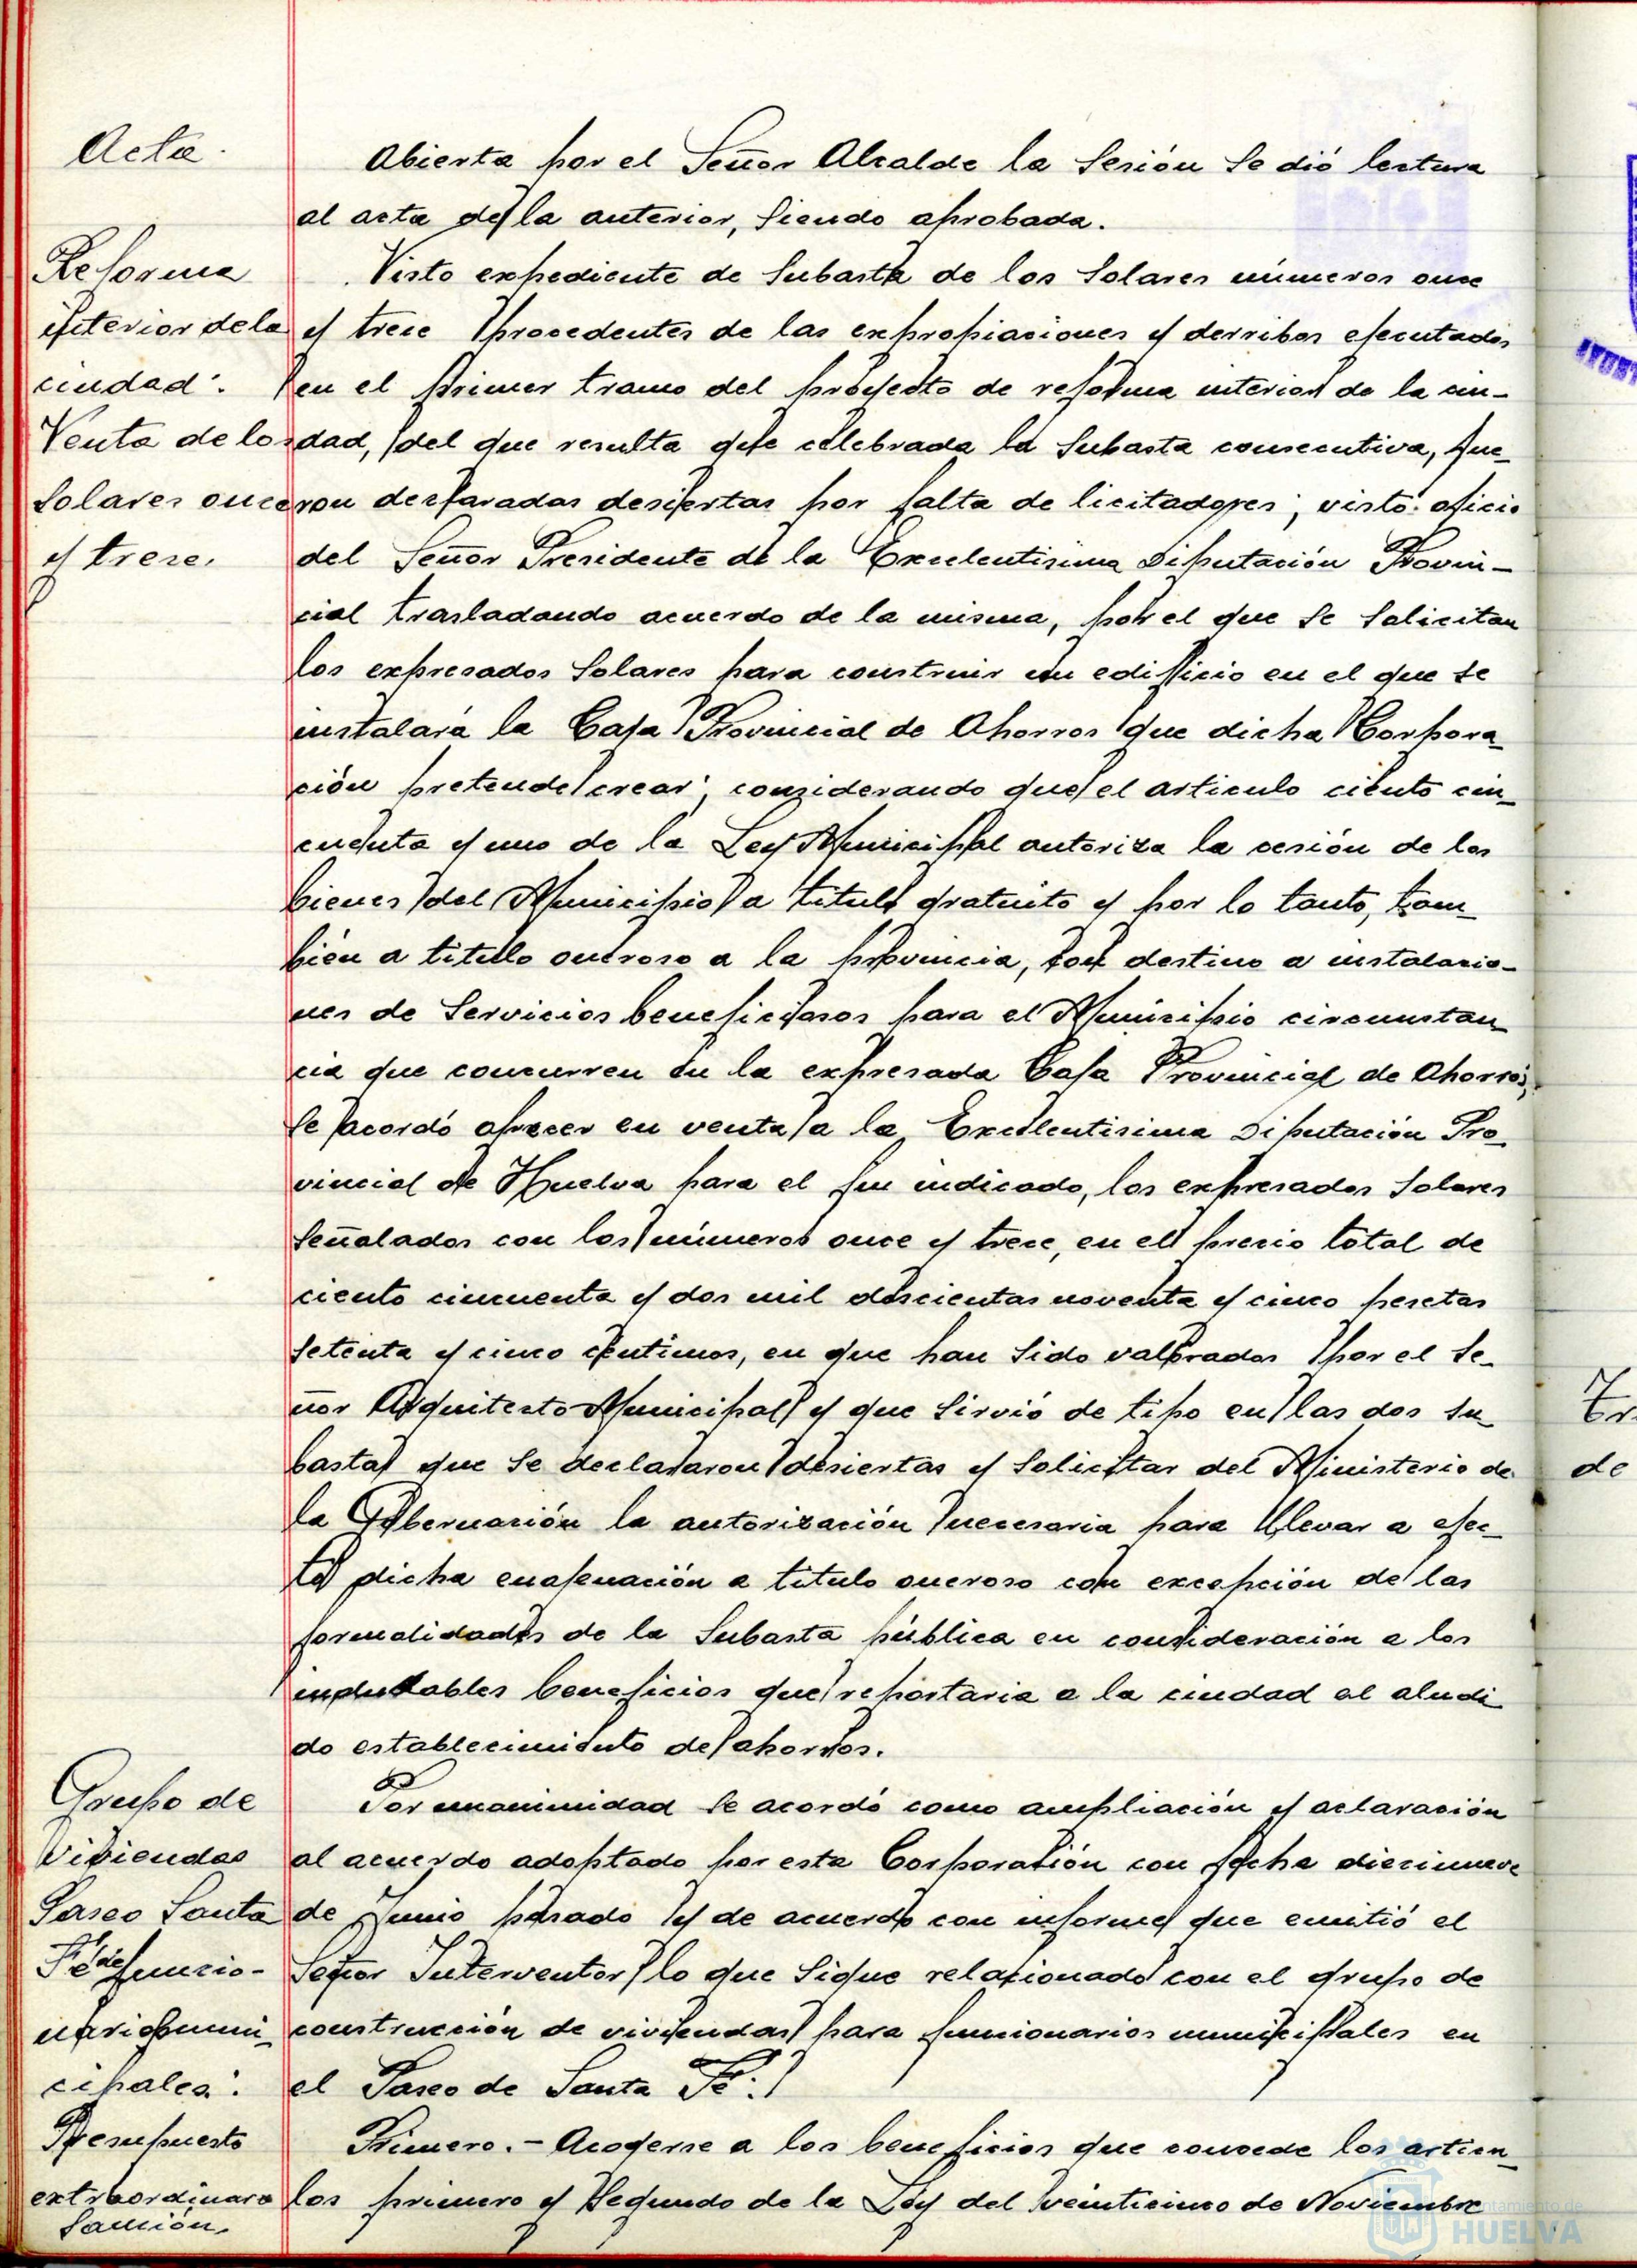 Acta.
Abierta por el Señor Alcalde la Sesión Se dió lectura
al acta de la anterior, Siendo aprobada.
Reforma
interior de la
ciudad.
Venta de los
Solares once
y trece.
Visto expediente de Subasta de los Solares números once
y trece procedentes de las expropiaciones y derribos ejecutados
en el primer tramo del proyecto de reforma interior de la ciu-
dad, del que resulta que celebrada la Subasta consecutiva, fue-
ron declaradas desiertas por falta de licitadores; visto oficio
del Señor Presidente de la Excelentisima Diputación Provin-
cial trasladando acuerdo de la misma, por el que Se Solicitan
los expresados Solares para construir un edificio en el que se
instalará la Caja Provincial de Ahorros que dicha Corpora-
ción pretende crear; considerando que el articulo ciento cin-
cuenta y uno de la Ley Municipal autoriza la cesión de los
bienes del Municipio a titulo gratuito y por lo tanto, tam-
bién a titulo oneroso a la provincia, con destino a instalacio-
nes de Servicios beneficiosos para el Municipio circunstan-
cia que concurren en la expresada Caja Provincial de Ahorros,
Se acordó ofrecer en venta a la Excelentisima Diputación Pro-
vincial de Huelva para el fin indicado, los expresados Solares
Señalados con los números once y trece, en el precio total de
ciento cincuenta y dos mil doscientas noventa y cinco pesetas
Setenta y cinco céntimos, en que han Sido valorados por el Se-
ñor Arquitecto Municipal y que Sirvió de tipo en las dos Su-
bastas que Se declararon desiertas y Solicitar del Ministerio de
la Gobernación la autorización necesaria para llevar a efec-
to dicha enajenación a titulo oneroso con excepción de las
formalidades de la Subasta pública en consideración a los
indudables beneficios que reportaria a la ciudad el aludi-
do establecimiento de ahorros.
Grupo de
Viviendas
Paseo Santa
Fé de funcio-
narios muni-
cipales.
Presupuesto
extraordinario
Sanción.
Por unanimidad Se acordó como ampliación y aclaración
al acuerdo adoptado por esta Corporación con fecha diecinueve
de Junio pasado y de acuerdo con informe que emitió el
Señor Interventor lo que Sigue relacionado con el grupo de
construcción de viviendas para funcionarios municipales en
el Paseo de Santa Fé:
Primero.- Acogerse a los beneficios que concede los articu-
los primero y Segundo de la Ley del veinticinco de Noviembre
de
Ayuntamiento de
HUELVA